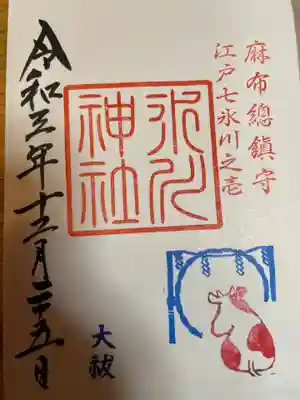 麻布總鎮守
江戸七氷川之壱
氷川神社
大祓
令和三年十二月二十五日